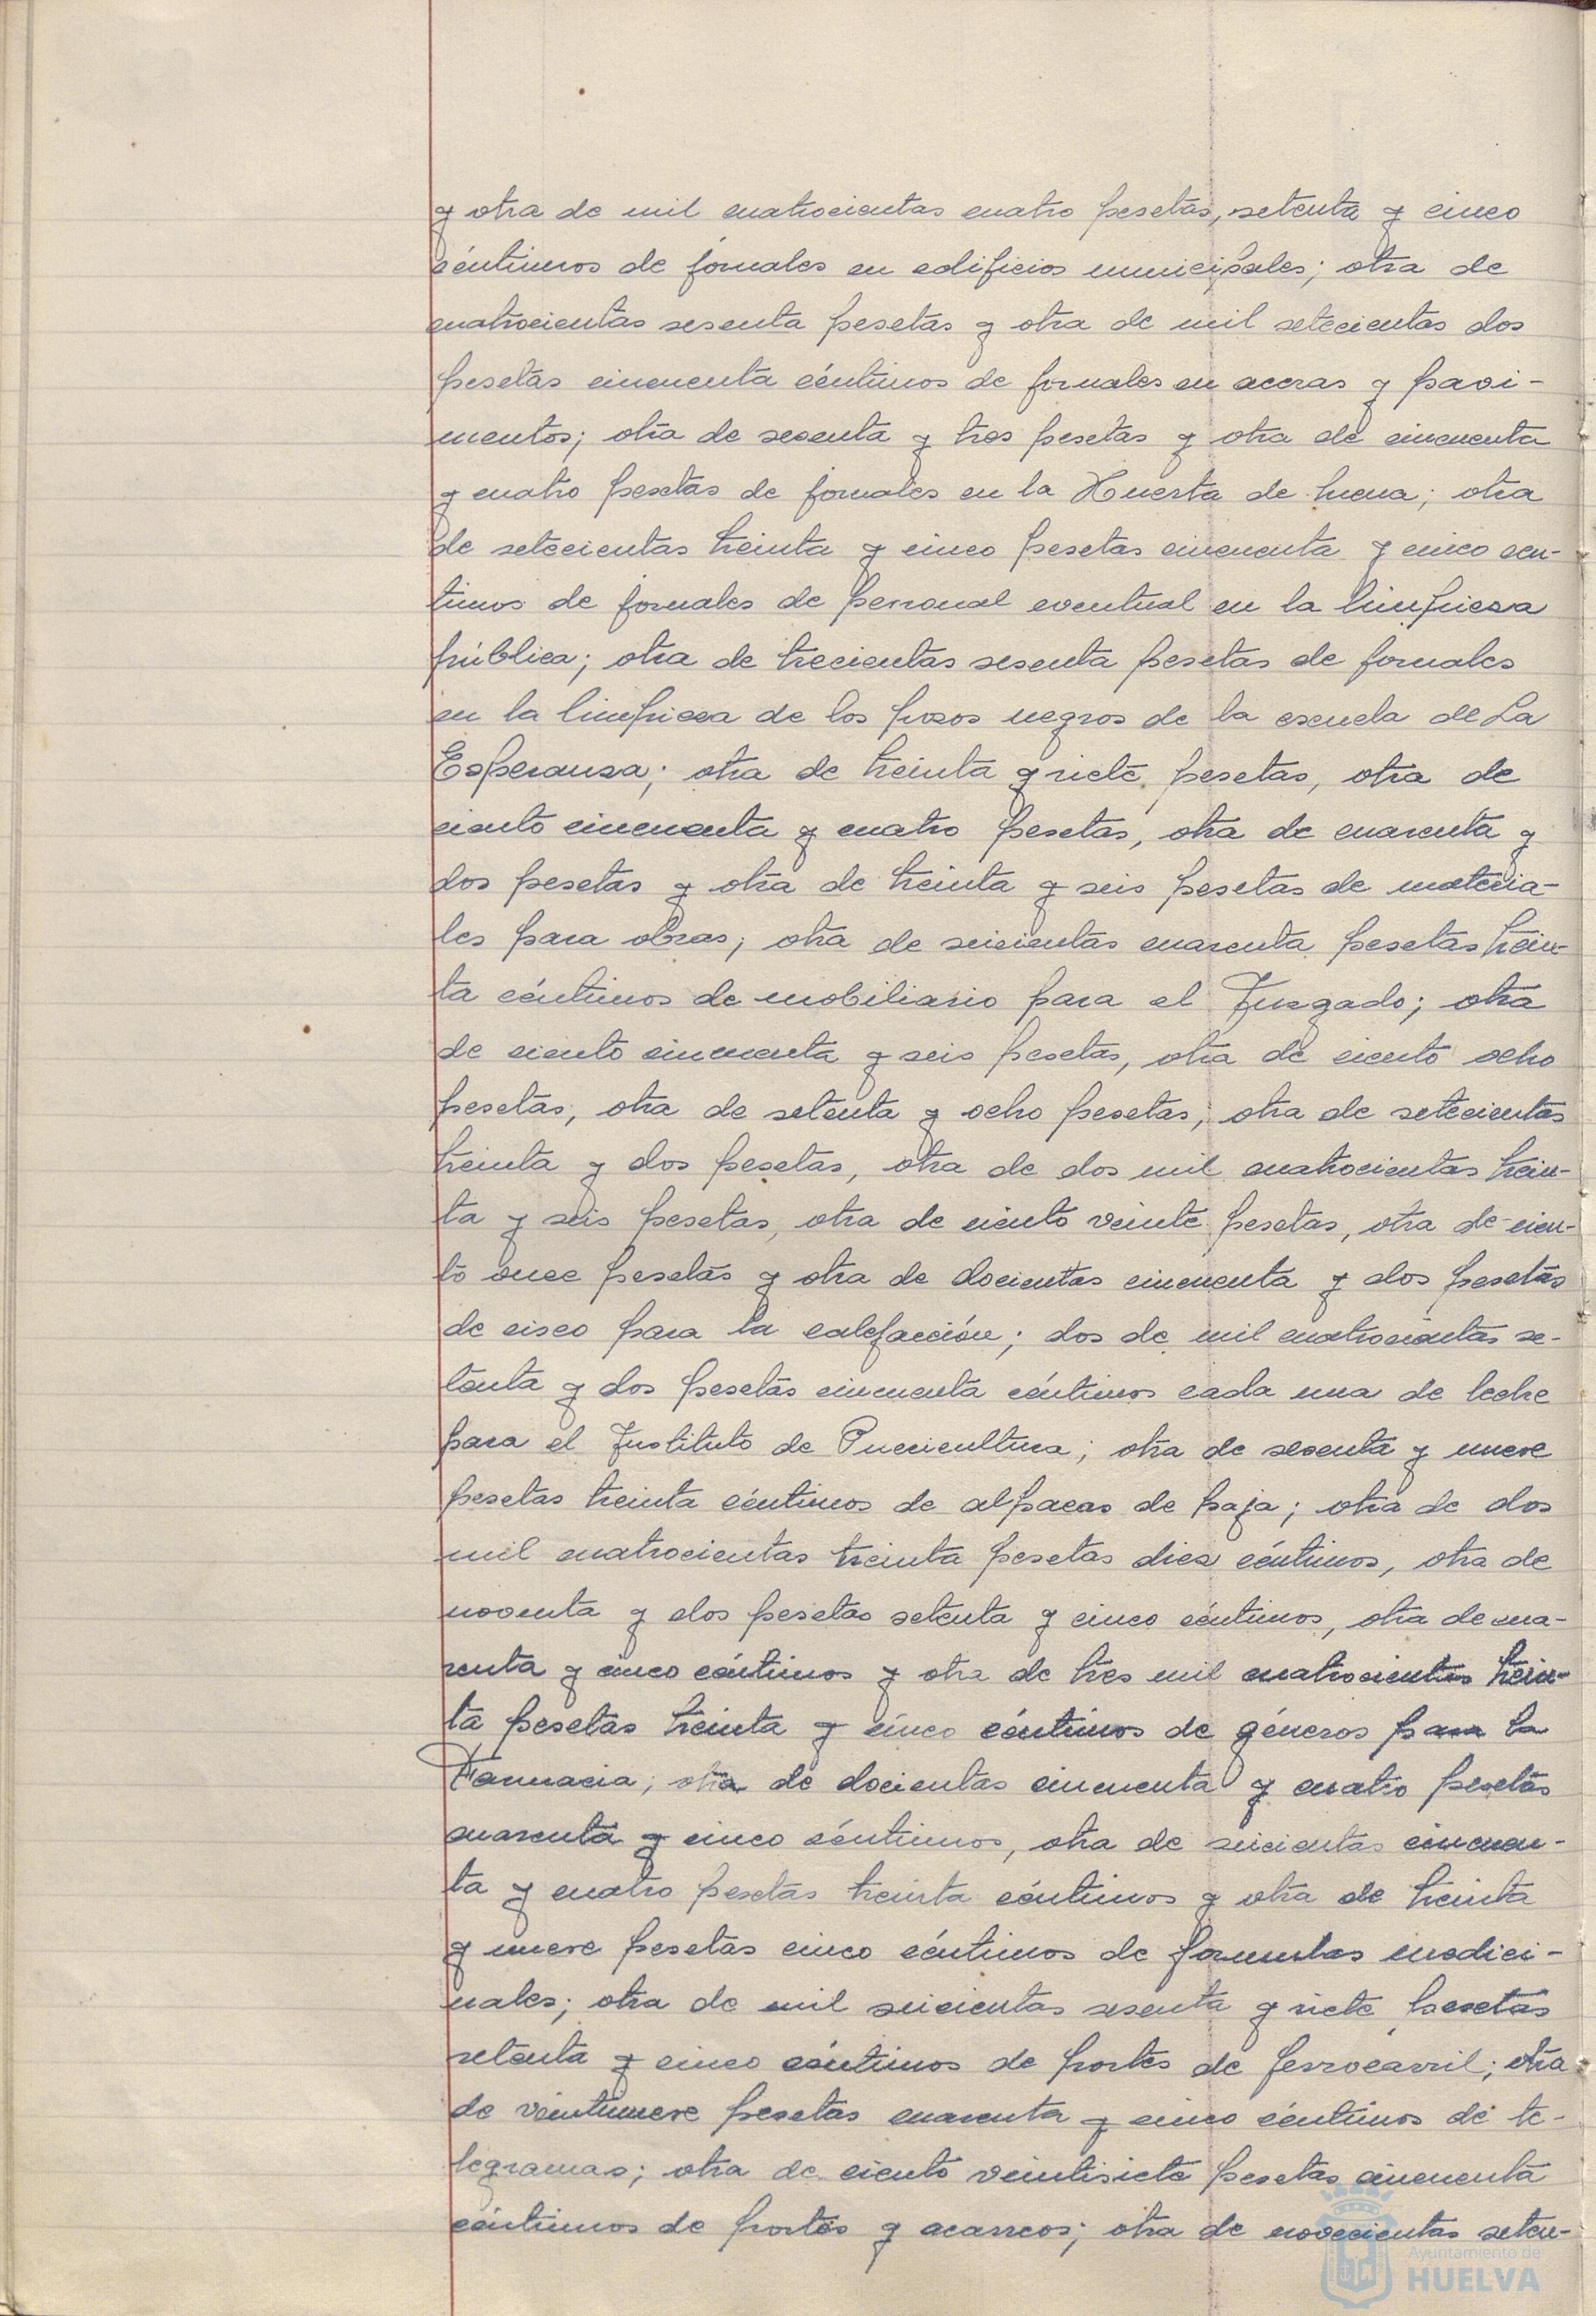 y otra de mil cuatrocientas cuatro pesetas, setenta y cinco
céntimos de jornales en edificios municipales; otra de
cuatrocientas sesenta pesetas y otra de mil setecientas dos
pesetas cincuenta céntimos de jornales en aceras y pavi-
mentos; otra de sesenta y tres pesetas y otra de cincuenta
y cuatro pesetas de jornales en la Huerta de Mena; otra
de setecientas treinta y cinco pesetas cincuenta y cinco cén-
timos de jornales de personal eventual en la limpieza
pública; otra de trecientas sesenta pesetas de jornales
en la limpieza de los pozos negros de la escuela de La
Esperanza; otra de treinta y siete pesetas, otra de
ciento cincuenta y cuatro pesetas, otra de cuarenta y
dos pesetas y otra de treinta y seis pesetas de materia-
les para obras; otra de seicientas cuarenta pesetas trein-
ta céntimos de mobiliario para el Juzgado; otra
de ciento cincuenta y seis pesetas, otra de ciento ocho
pesetas, otra de setenta y ocho pesetas, otra de setecientas
treinta y dos pesetas, otra de dos mil cuatrocientas trein-
ta y seis pesetas, otra de ciento veinte pesetas, otra de cien-
to once pesetas y otra de docientas cincuenta y dos pesetas
de cisco para la calefacción; dos de mil cuatrocientas se-
tenta y dos pesetas cincuenta céntimos cada una de leche
para el Instituto de Puericultura; otra de sesenta y nueve
pesetas treinta céntimos de alpacas de paja; otra de dos
mil cuatrocientas treinta pesetas diez céntimos, otra de
noventa y dos pesetas setenta y cinco céntimos, otra de cua-
renta y cinco céntimos y otra de tres mil cuatrocientas trein-
ta pesetas treinta y cinco céntimos de géneros para la
Farmacia; otra de docientas cincuenta y cuatro pesetas
cuarenta y cinco céntimos, otra de seicientas cincuen-
ta y cuatro pesetas treinta céntimos y otra de treinta
y nueve pesetas cinco céntimos de formulas medici-
nales; otra de mil seicientas sesenta y siete pesetas
setenta y cinco céntimos de portes de ferrocarril; otra
de veintinueve pesetas cuarenta y cinco céntimos de te-
legramas; otra de ciento veintisiete pesetas cincuenta
céntimos de portes y acarreos; otra de novecientas seten-
Ayuntamiento de
HUELVA